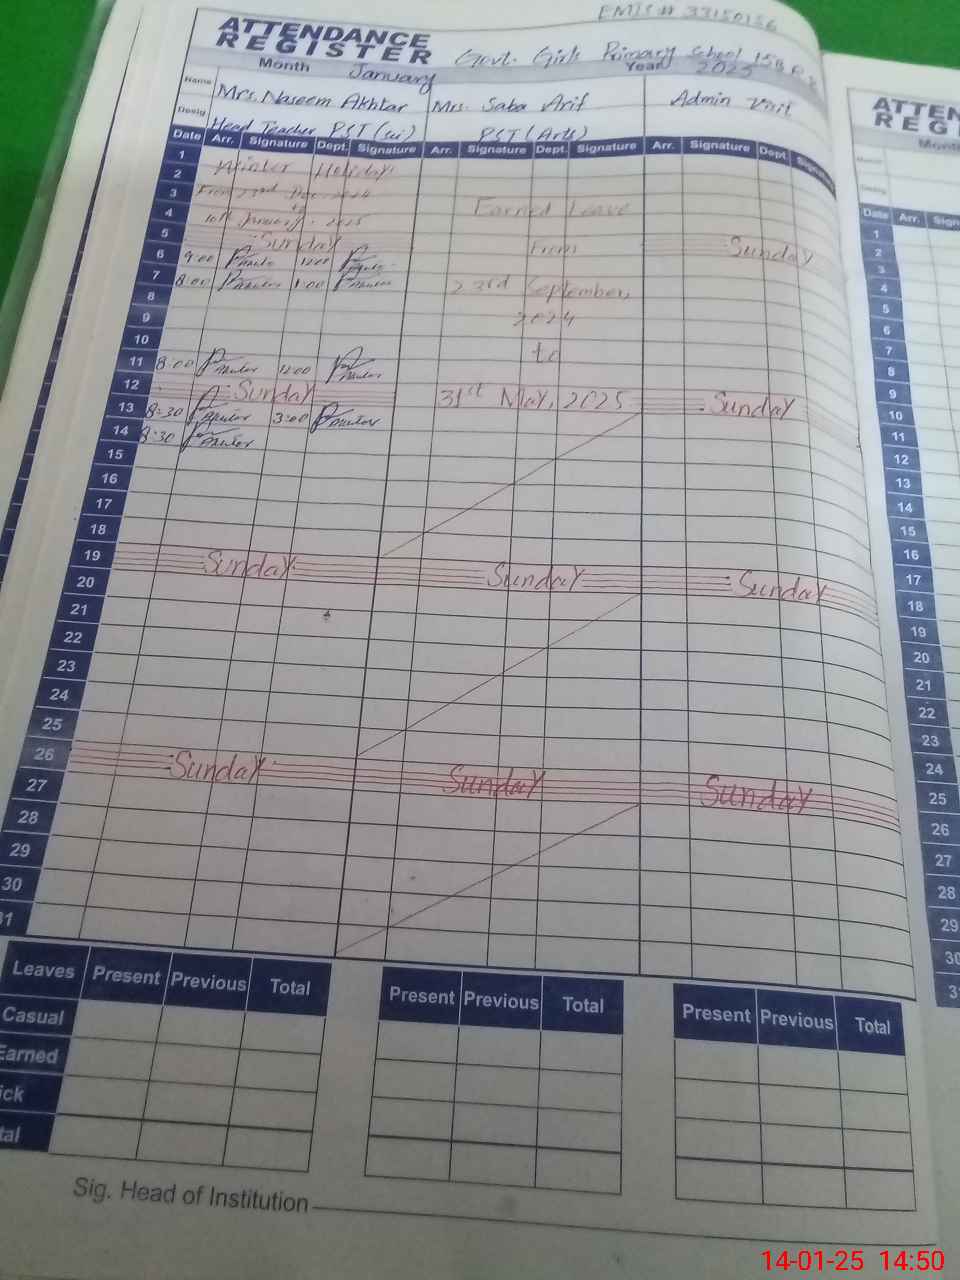 EMIS # 33150156
ATTENDANCE REGISTER Govt. Girls Primary School 15B
Month January Year 2025
Name Mrs. Naseem Akhtar Mrs. Saba Arif Admin Visit
Desig Head Teacher PST (sci) PST (Arts)
Date Arr. Signature Dept. Signature Arr. Signature Dept. Signature Arr. Signature Dept. Signature
1 Winter Holidays
2
3 From Dec. 2024 Earned Leave
to
4 10th January. 2025
5 Sunday From Sunday
6 9:00 12:00
7 8:00 1:00 23rd September,
8 2024
9
10 to
11 8:00 12:00
12 Sunday 31st May, 2025 Sunday
13 8:30 3:00
14 8:30
15
16
17
18
19 Sunday Sunday Sunday
20
21
22
23
24
25
26 Sunday Sunday Sunday
27
28
29
30
31
Leaves Present Previous Total Present Previous Total Present Previous Total
Casual
Earned
ick
tal
Sig. Head of Institution
ATTEN
REG
Month
Date Arr. Sign
1
2
3
4
5
6
7
8
9
10
11
12
13
14
15
16
17
18
19
20
21
22
23
24
25
26
27
28
29
30
3
14-01-25 14:50